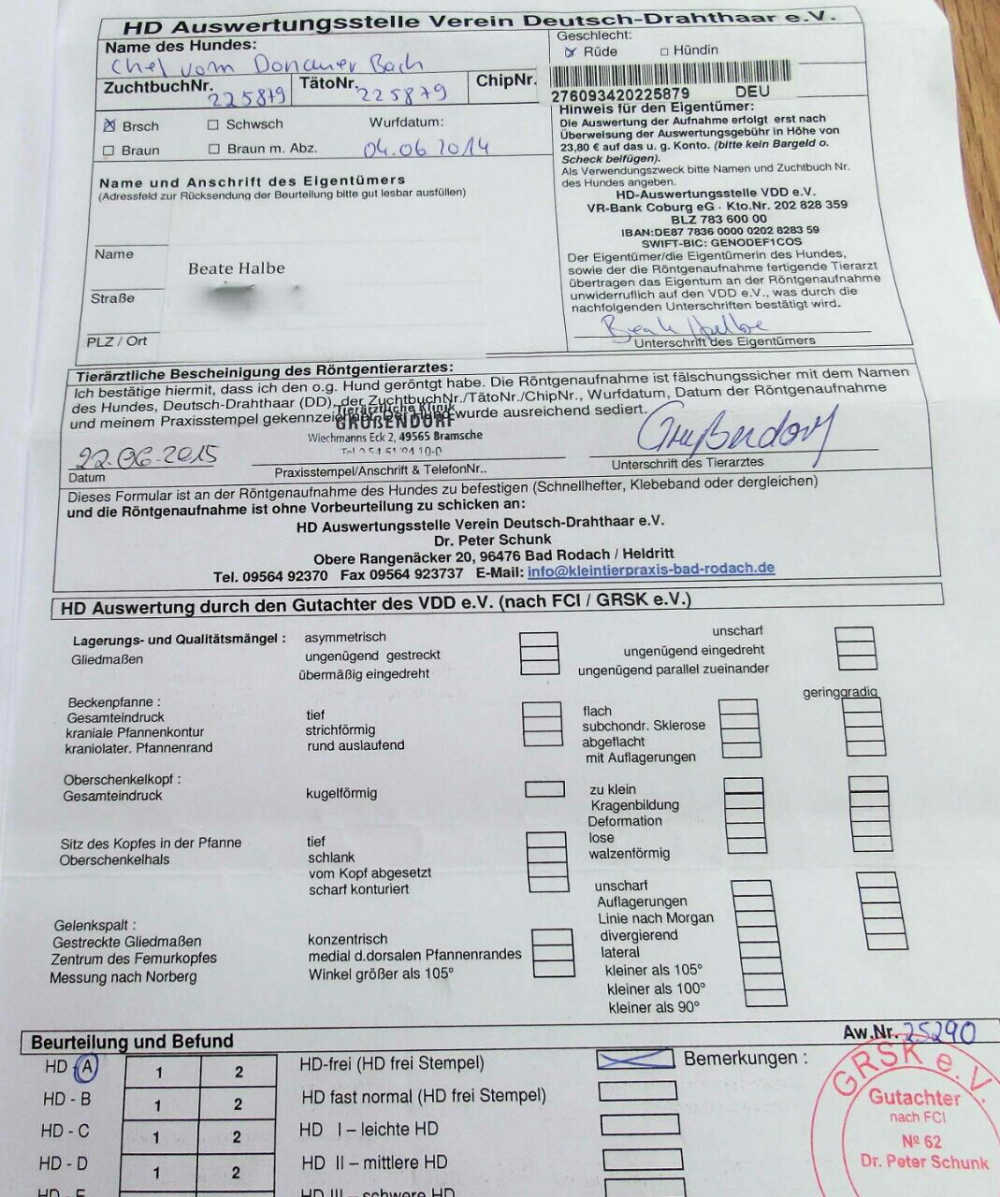 HD Auswertungsstelle Verein Deutsch-Drahthaar e.V.
Name des Hundes:
Chef vom Donauer Bach
Geschlecht:
Rüde Hündin
ZuchtbuchNr. 225879 TätoNr. 225879 ChipNr.
276093420225879 DEU
Brsch Schwsch Wurfdatum:
Braun Braun m. Abz. 04.06 2014
Hinweis für den Eigentümer:
Die Auswertung der Aufnahme erfolgt erst nach
Überweisung der Auswertungsgebühr in Höhe von
23,80 € auf das u. g. Konto. (bitte kein Bargeld o.
Scheck beifügen).
Als Verwendungszweck bitte Namen und Zuchtbuch Nr.
des Hundes angeben.
HD-Auswertungsstelle VDD e.V.
VR-Bank Coburg eG - Kto.Nr. 202 828 359
BLZ 783 600 00
IBAN:DE87 7836 0000 0202 8283 59
SWIFT-BIC: GENODEF1COS
Der Eigentümer/die Eigentümerin des Hundes,
sowie der die Röntgenaufnahme fertigende Tierarzt
übertragen das Eigentum an der Röntgenaufnahme
unwiderruflich auf den VDD e.V., was durch die
nachfolgenden Unterschriften bestätigt wird.
Beate Halbe
Unterschrift des Eigentümers
Name und Anschrift des Eigentümers
(Adressfeld zur Rücksendung der Beurteilung bitte gut lesbar ausfüllen)
Name
Beate Halbe
Straße
PLZ / Ort
Tierärztliche Bescheinigung des Röntgentierarztes:
Ich bestätige hiermit, dass ich den o.g. Hund geröntgt habe. Die Röntgenaufnahme ist fälschungssicher mit dem Namen
des Hundes, Deutsch-Drahthaar (DD), der ZuchtbuchNr./TätoNr./ChipNr., Wurfdatum, Datum der Röntgenaufnahme
und meinem Praxisstempel gekennzeichnet. Der Hund wurde ausreichend sediert.
Tierärztliche Klinik
GRUßENDORF
Wiechmanns Eck 2, 49565 Bramsche
22.06.2015
Grußendorf
Datum
Praxisstempel/Anschrift & TelefonNr..
Unterschrift des Tierarztes
Dieses Formular ist an der Röntgenaufnahme des Hundes zu befestigen (Schnellhefter, Klebeband oder dergleichen)
und die Röntgenaufnahme ist ohne Vorbeurteilung zu schicken an:
HD Auswertungsstelle Verein Deutsch-Drahthaar e.V.
Dr. Peter Schunk
Obere Rangenäcker 20, 96476 Bad Rodach / Heldritt
Tel. 09564 92370 Fax 09564 923737 E-Mail: info@kleintierpraxis-bad-rodach.de
HD Auswertung durch den Gutachter des VDD e.V. (nach FCI / GRSK e.V.)
Lagerungs- und Qualitätsmängel : asymmetrisch unscharf
Gliedmaßen ungenügend gestreckt ungenügend eingedreht
übermäßig eingedreht ungenügend parallel zueinander
geringgradig
Beckenpfanne :
Gesamteindruck tief flach
kraniale Pfannenkontur strichförmig subchondr. Sklerose
kraniolater. Pfannenrand rund auslaufend abgeflacht
mit Auflagerungen
Oberschenkelkopf :
Gesamteindruck kugelförmig zu klein
Kragenbildung
Deformation
Sitz des Kopfes in der Pfanne tief lose
Oberschenkelhals schlank walzenförmig
vom Kopf abgesetzt
scharf konturiert unscharf
Auflagerungen
Linie nach Morgan
Gelenkspalt :
Gestreckte Gliedmaßen konzentrisch divergierend
Zentrum des Femurkopfes medial d.dorsalen Pfannenrandes lateral
Messung nach Norberg Winkel größer als 105° kleiner als 105°
kleiner als 100°
kleiner als 90°
Beurteilung und Befund Aw.Nr. 25290
HD - A 1 2 HD-frei (HD frei Stempel) Bemerkungen :
HD - B 1 2 HD fast normal (HD frei Stempel)
HD - C 1 2 HD I – leichte HD
HD - D 1 2 HD II – mittlere HD
HD - E HD III – schwere HD
GRSK e.V.
Gutachter
nach FCI
Nº 62
Dr. Peter Schunk